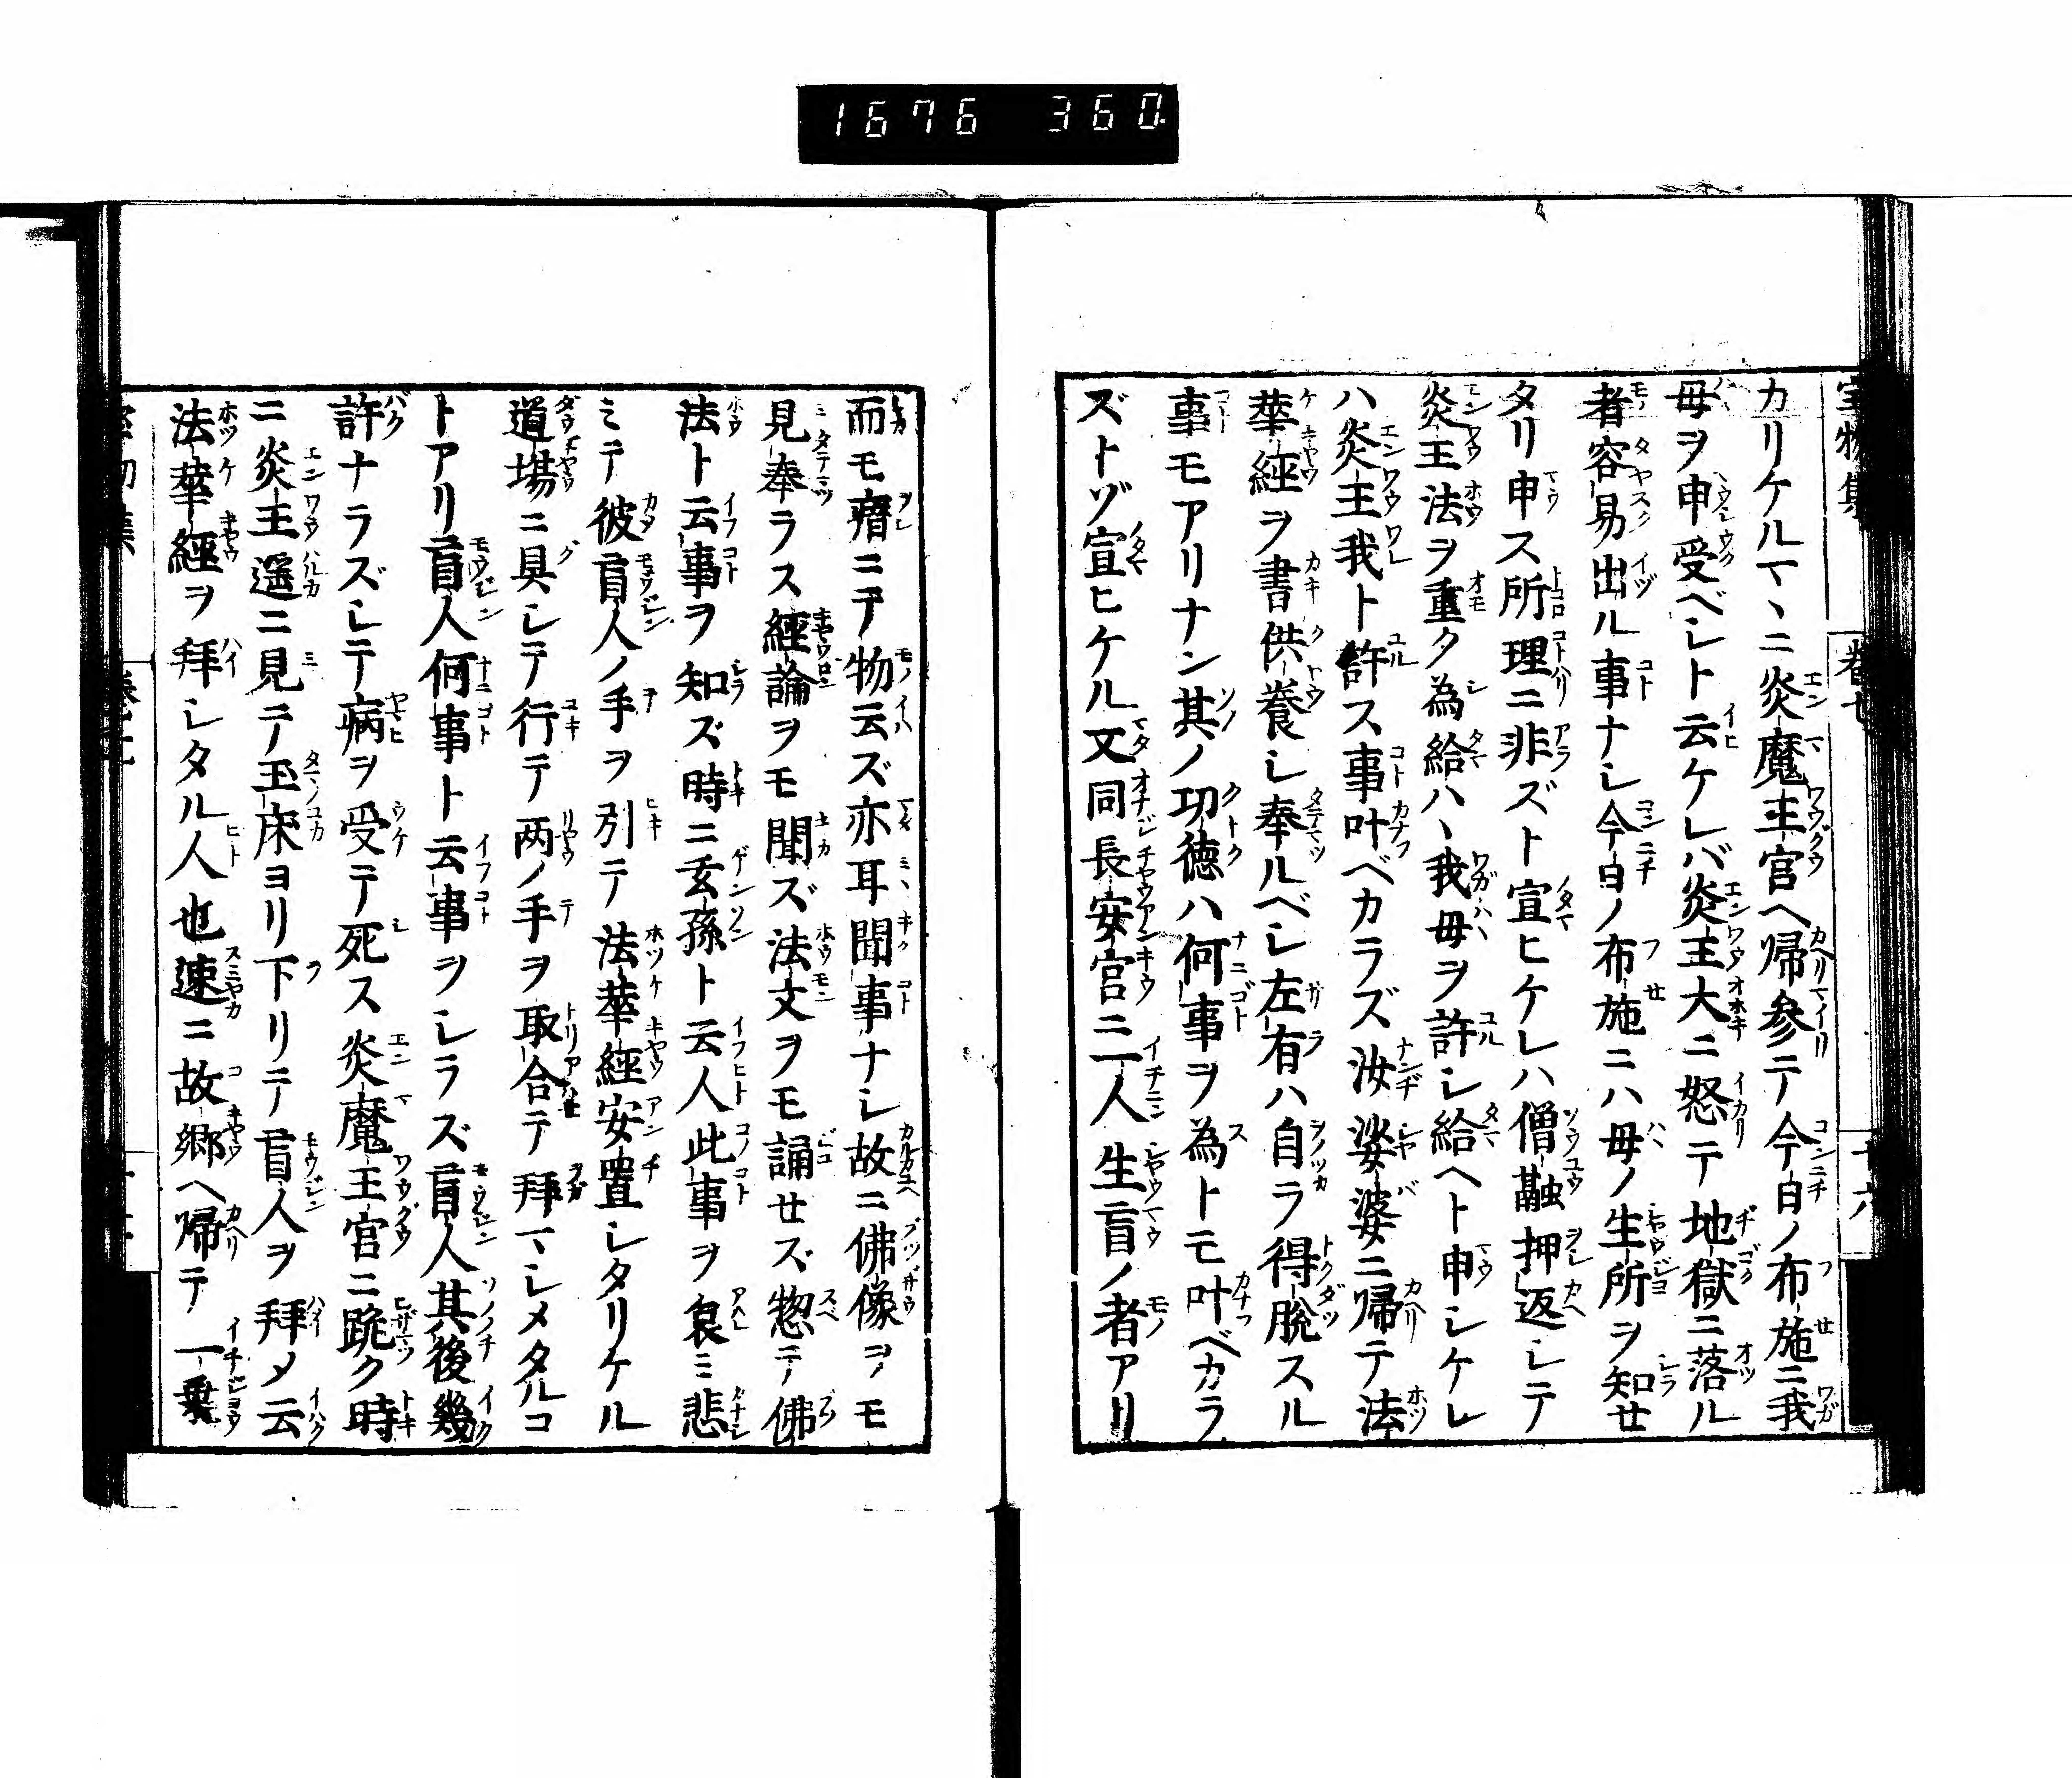 1676 360.
カリケルマヽニ炎魔王宮ヘ帰参テ今日ノ布施ニ我
母ヲ申受ベシト云ケレバ炎王大ニ怒テ地獄ニ落ル
者容易出ル事ナシ今日ノ布施ニハ母ノ生所ヲ知セ
タリ申ス所理ニ非ズト宣ヒケレハ僧融押返シテ
炎王法ヲ重ク為給ハヽ我母ヲ許シ給ヘト申シケレ
ハ炎王我ト許ス事叶ベカラズ汝娑婆ニ帰テ法
華經ヲ書供養シ奉ルベシ左有ハ自ラ得脱スル
事モアリナン其ノ功徳ハ何事ヲ為トモ叶ベカラ
ズトゾ宣ヒケル又同長安宮ニ一人生盲ノ者アリ
而モ瘖ニテ物云ズ亦耳聞事ナシ故ニ佛像ヲモ
見奉ラス經論ヲモ聞ズ法文ヲモ誦せズ惣テ佛
法ト云事ヲ知ズ時ニ玄孫ト云人此事ヲ哀ミ悲
ミテ彼盲人ノ手ヲ引テ法華經安置シタリケル
道場ニ具シテ行テ两ノ手ヲ取合テ拜マシメタルコ
トアリ盲人何事ト云事ヲシラズ盲人其後幾
許ナラズシテ病ヲ受テ死ス炎魔王宮ニ跪ク時
ニ炎王遥ニ見テ玉床ヨリ下リテ盲人ヲ拜メ云
法華經ヲ拜シタル人也速ニ故郷ヘ帰テ一乗